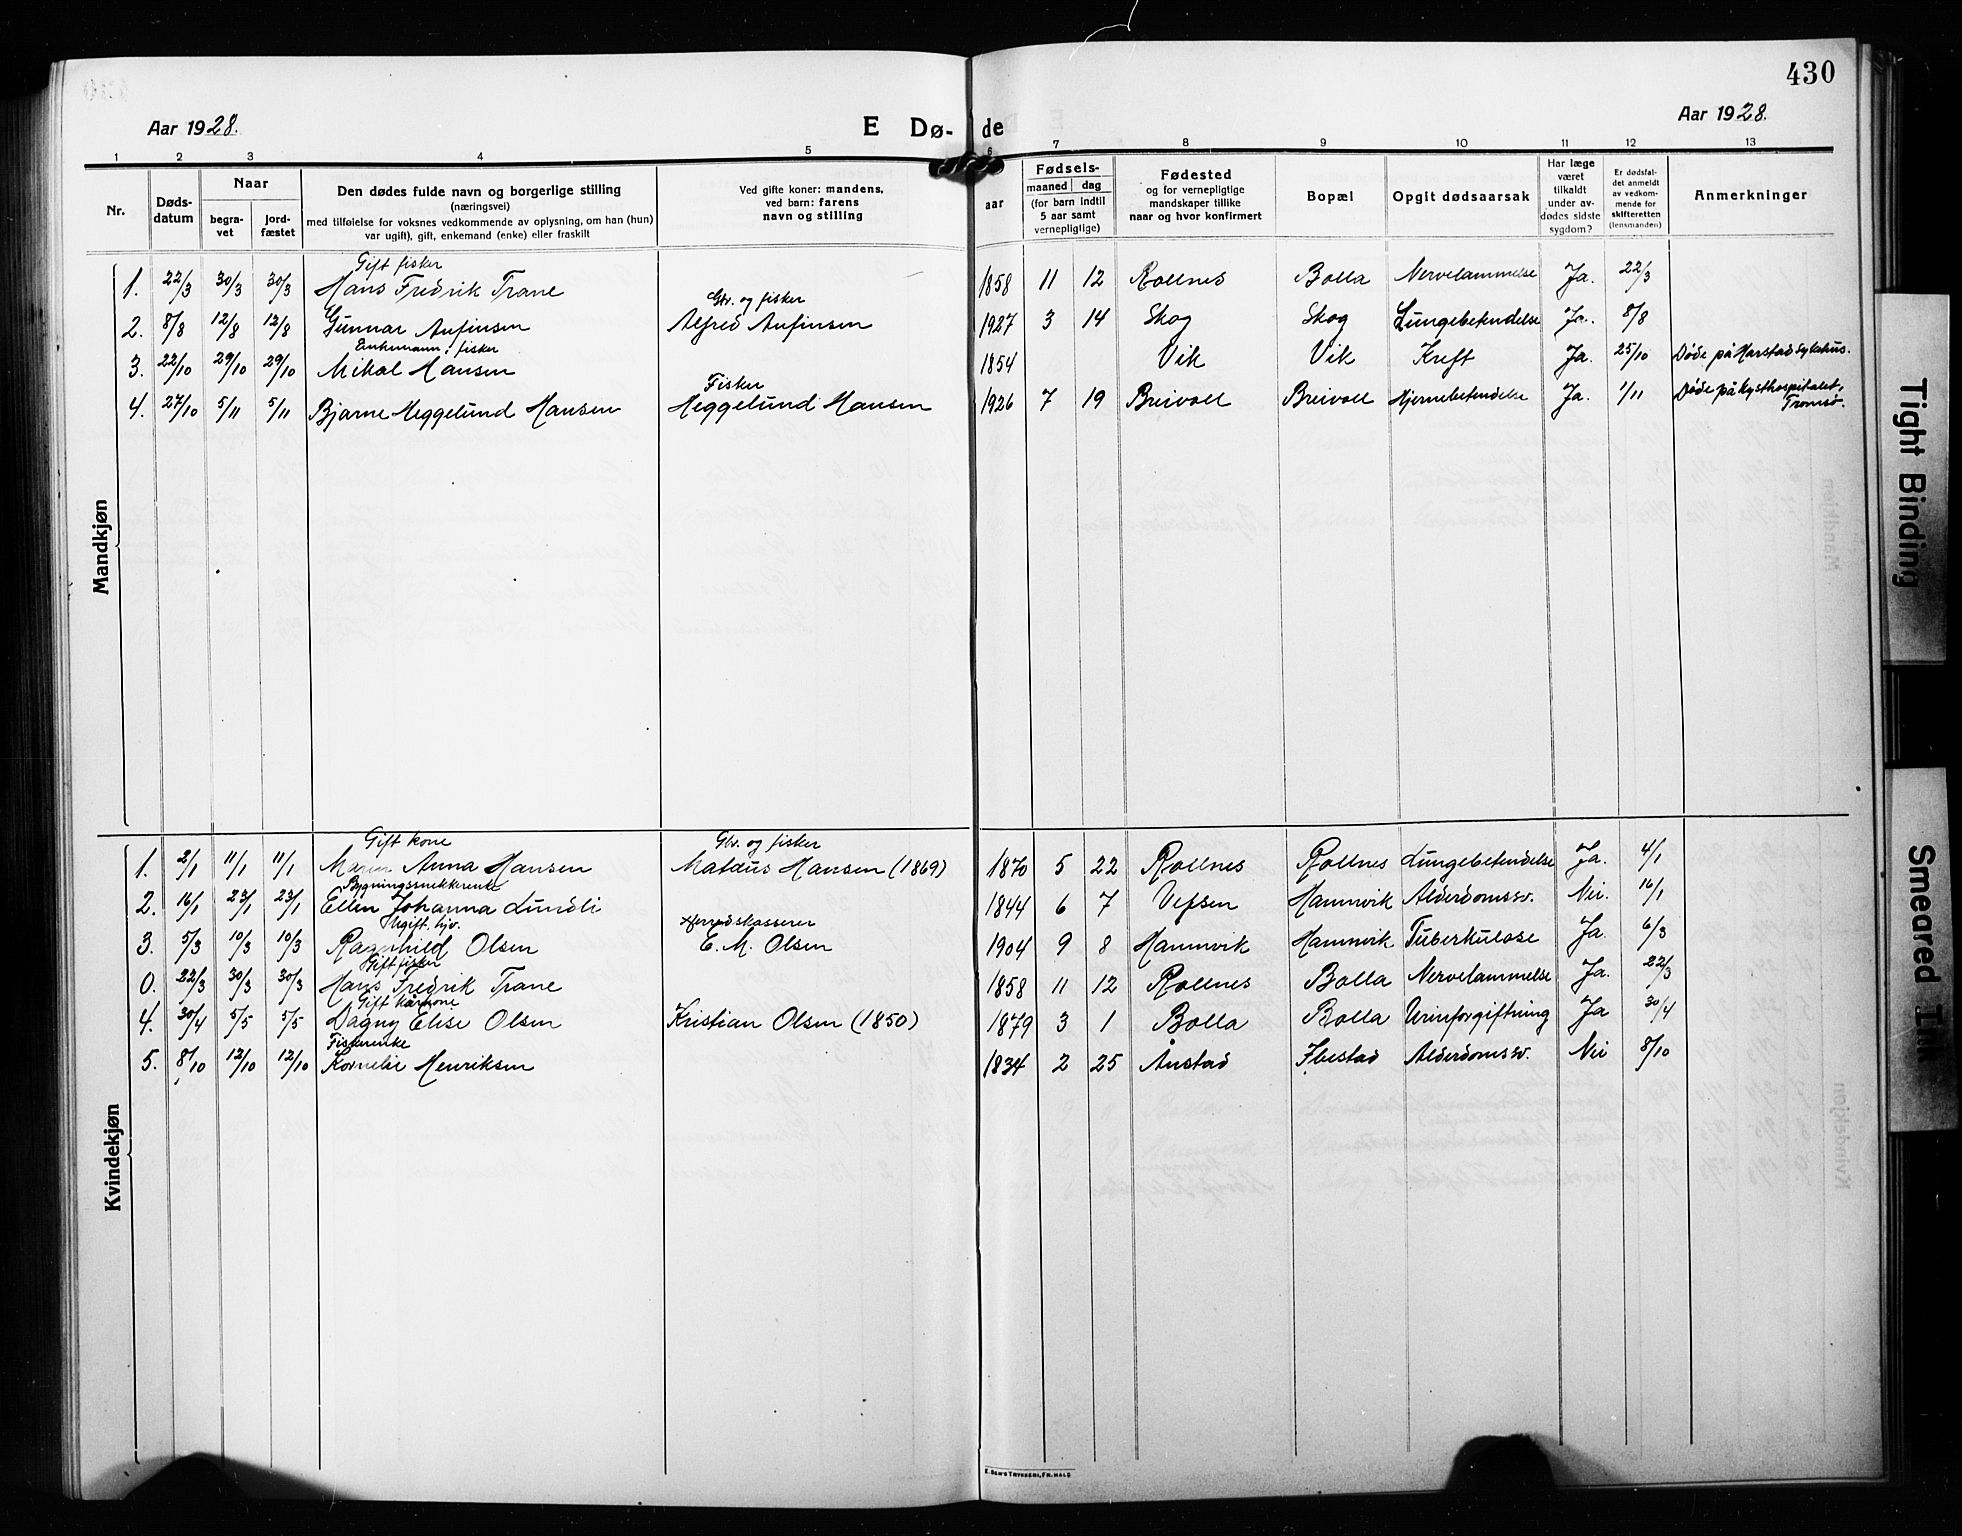 430
Aar 1928.
E Dø- de
Aar 1928.
1 2 3 4 5 6 7 8 9 10 11 12 13
Nr.
Døds-
datum
Naar
begra-
vet
jord-
fæstet
Den dødes fulde navn og borgerlige stilling
(næringsvei)
med tilføielse for voksnes vedkommende av oplysning, om han (hun)
var ugift), gift, enkemand (enke) eller fraskilt
Ved gifte koner: mandens,
ved barn: farens
navn og stilling
aar
Fødsels-
maaned dag
(for barn indtil
5 aar samt
vernepligtige)
Fødested
og for vernepligtige
mandskaper tillike
naar og hvor konfirmert
Bopæl
Opgit dødsaarsak
Har læge
været
tilkaldt
under av-
dødes sidste
sygdom?
Er dødsfal-
det anmeldt
av vedkom-
mende for
skifteretten
(lensmanden)
Anmerkninger
Mandkjøn
Gift fisker
1. 22/3 30/3 30/3 Hans Fredrik Trane 1858 11 12 Rollnes Bolla Nervelammelse Ja. 22/3
Gbr. og fisker
2. 8/8 12/8 12/8 Gunnar Anfinsen Alfred Anfinsen 1927 3 14 Skog Skog Lungebetendelse Ja. 8/8
Enkemann, fisker
3. 22/10 29/10 29/10 Mikal Hansen 1854 Vik Vik Kreft Ja. 25/10 Døde på Harstad sykehus.
Fisker
4. 27/10 5/11 5/11 Bjarne Heggelund Hansen Heggelund Hansen 1926 7 19 Breivoll Breivoll Hjernebetendelse Ja. 1/11 Døde på kysthospitalet,
Tromsø.
Kvindekjøn
Gift kone Gbr. og fisker
1. 2/1 11/1 11/1 Maren Anna Hansen Mataus Hansen (1869) 1870 5 22 Rollnes Rollnes Lungebetendelse Ja. 4/1
Bygningssnekkerenke
2. 16/1 23/1 23/1 Ellen Johanna Lundli 1844 6 7 Vefsen Hamnvik Alderdomssv. Nei. 16/1
Ugift, hjv. Herredskasserer
3. 5/3 10/3 10/3 Ragnhild Olsen E. M. Olsen 1904 9 8 Hamnvik Hamnvik Tuberkulose Ja. 6/3
Gift fisker
0. 22/3 30/3 30/3 Hans Fredrik Trane 1858 11 12 Rollnes Bolla Nervelammelse Ja. 22/3
Gift kårkone
4. 30/4 5/5 5/5 Dagny Elise Olsen Kristian Olsen (1850) 1879 3 1 Bolla Bolla Urinforgiftning Ja 30/4
Fiskerenke
5. 8/10 12/10 12/10 Kornelie Henriksen 1834 2 25 Ånstad Ibestad Alderdomssv. Nei 8/10
E. SEM'S TRYKKERI, FR.HALD
Tight Binding
Smeared Ink